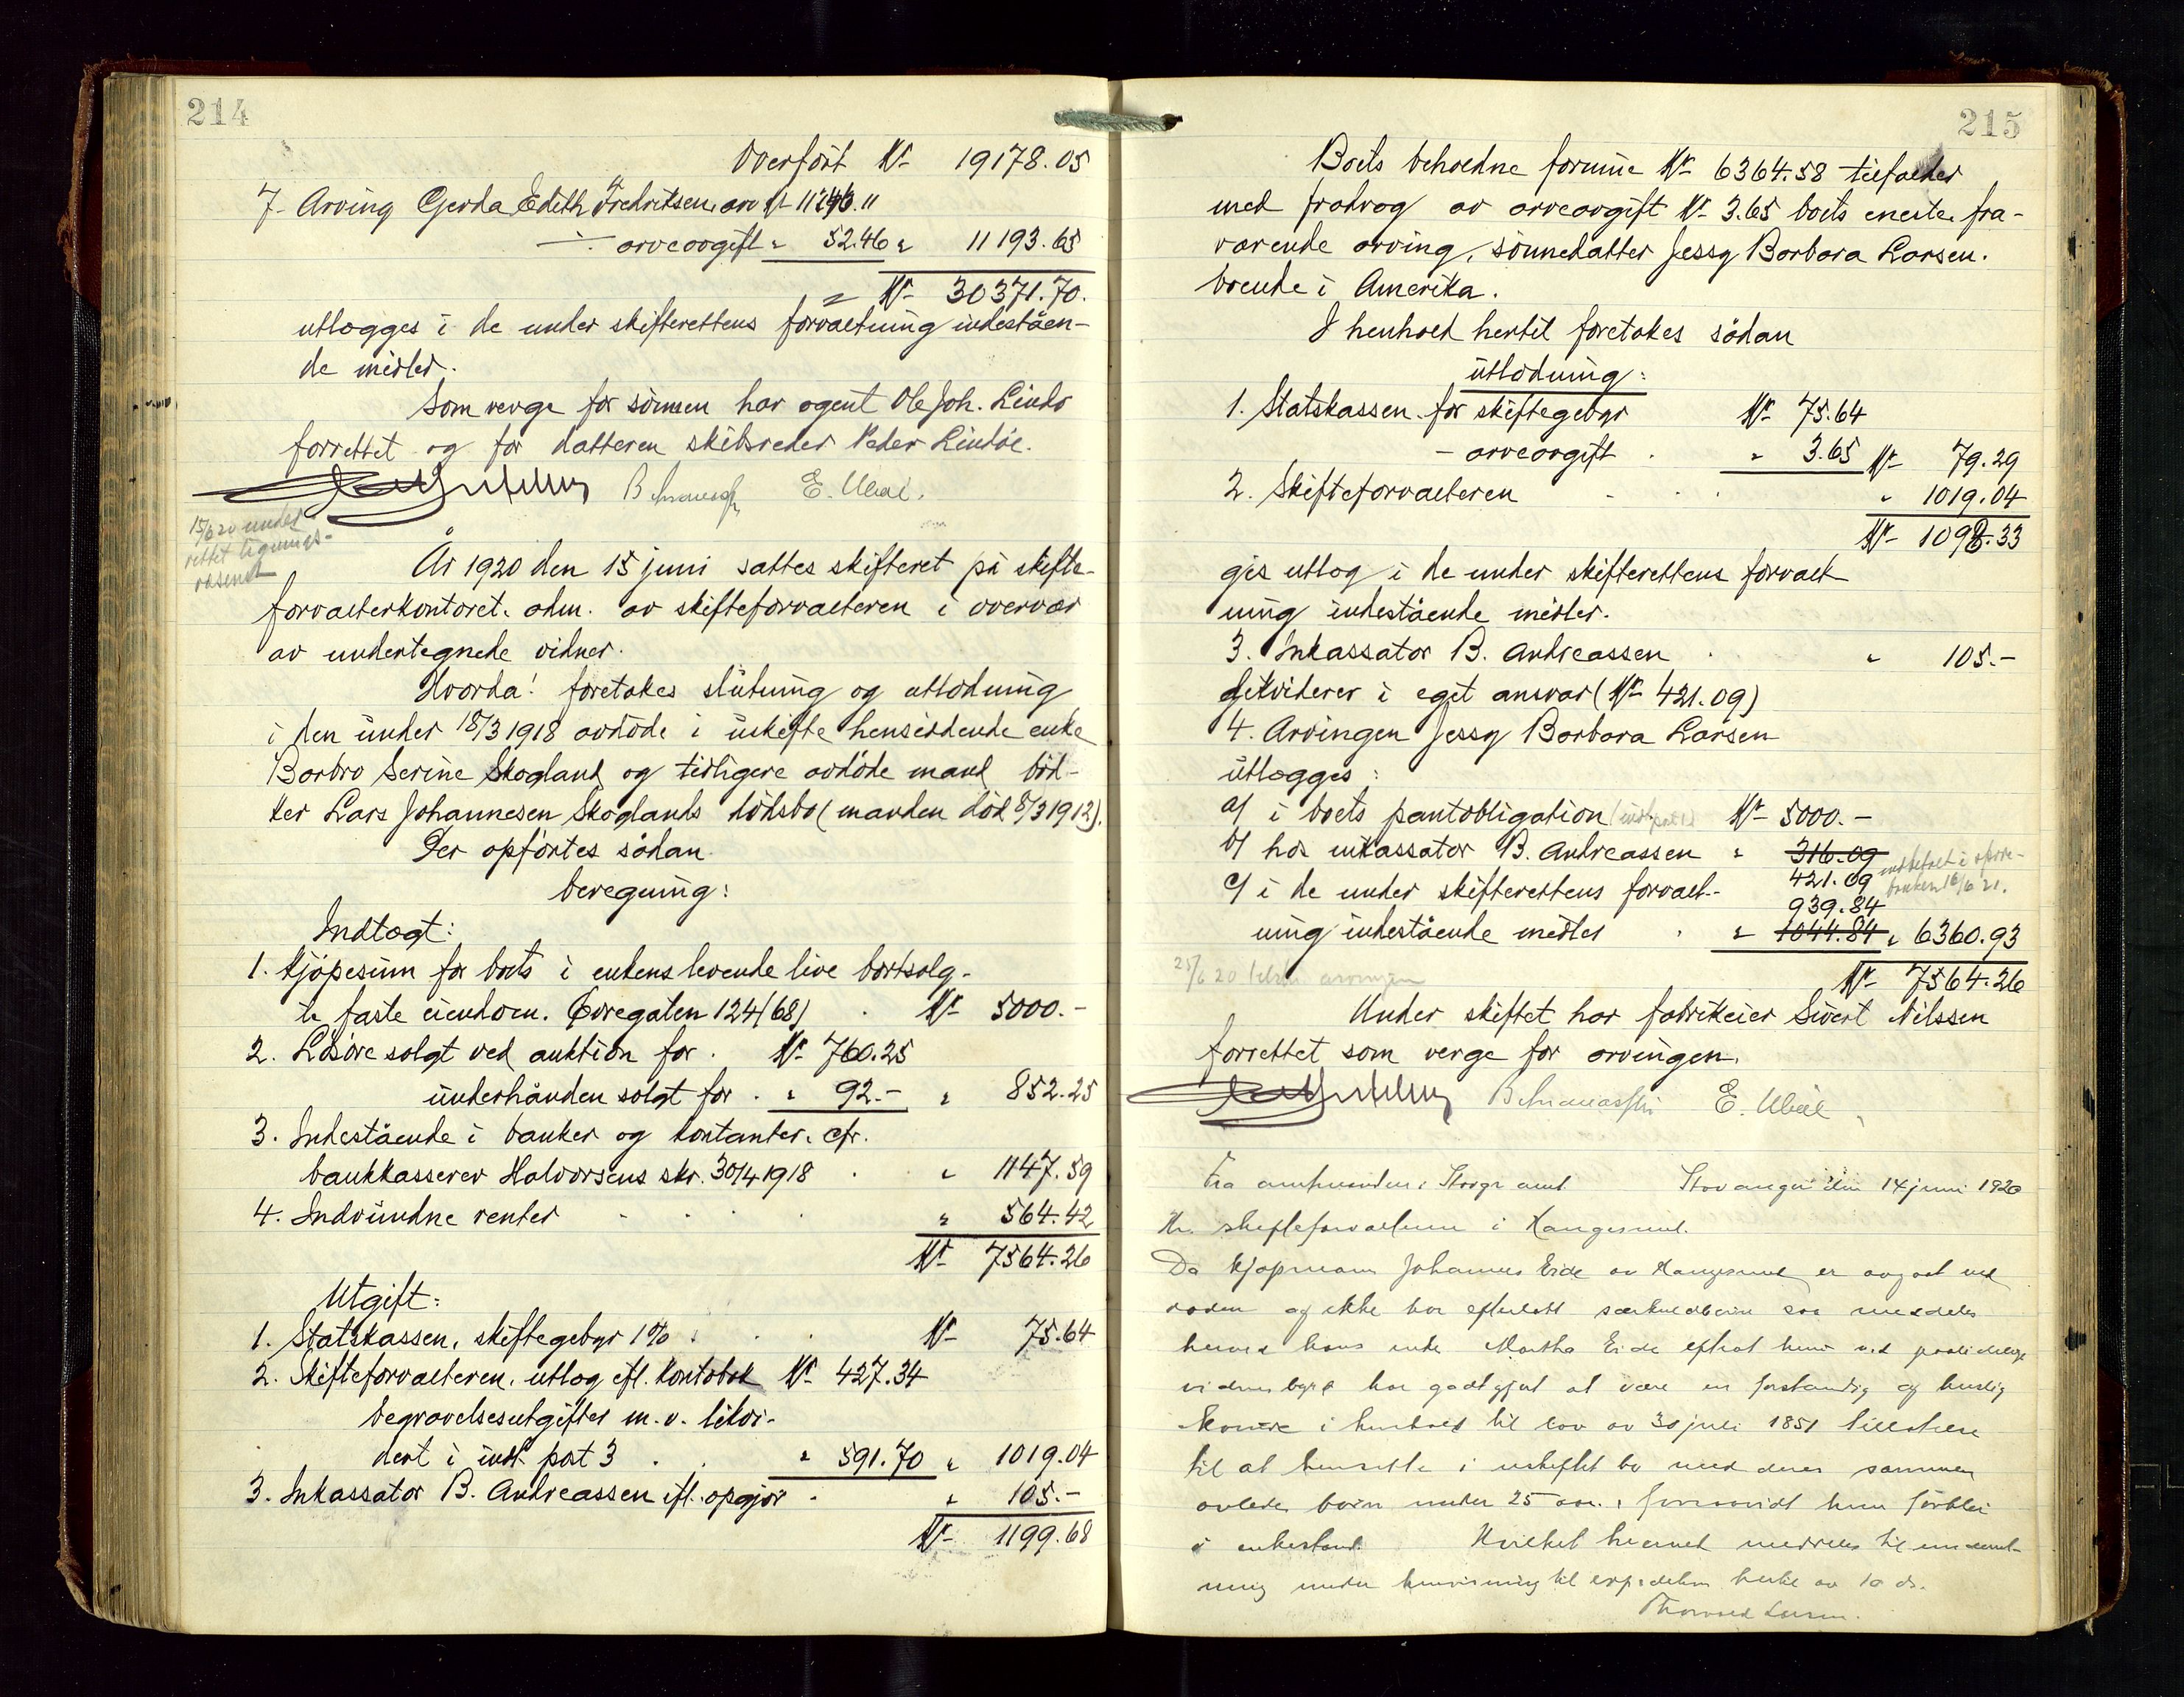 214
Overført Kr 19178.05
7. Arving Gerda Edith Fredriksen, arv Kr 11246.11
÷ arveavgift " 52.46 " 11193.65
= Kr 30371.70.
utlægges i de under skifterettens forvaltning indeståen-
de midler.
Som verge for sønnen har agent Ole Joh. Lindø
forrettet og for datteren skibsreder Peder Lindøe.
E. Ubøe.
15/6 20 under-
rettet lignings-
væsenet
År 1920 den 15 juni sattes skifteret på skifte-
forvalterkontoret, adm. av skifteforvalteren i overvær
av undertegnede vidner.
Hvorda! foretokes slutning og utlodning
i den under 18/3 1918 avdøde i uskifte hensiddende enke
Barbro Serine Skogland og tidligere avdøde mand bød-
ker Lars Johannesen Skoglands dødsbo (manden død 8/3 1912).
Der opførtes sådan
beregning:
Indtægt:
1. Kjøpesum for boets i enkens levende live bortsolg-
te faste eiendom. Øvregaten 124 (68) Kr 5000.-
2. Løsøre solgt ved auktion for Kr 760.25
underhånden solgt for " 92.- " 852.25
3. Indestående i banker og kontanter, cfr.
bankkasserer Halvorsens skr. 30/4 1918 " 1147.59
4. Indvundne renter " 564.42
Kr 7564.26
Utgift:
1. Statskassen, skiftegebyr 1% Kr 75.64
2. Skifteforvalteren, utlæg efl. kontobok Kr 427.34
begravelsesutgifter m.v. likvi-
dert i indt. post 3 " 591.70 " 1019.04
3. Inkassator B. Andreassen ifl. opgjør " 105.-
Kr 1199.68
215
Boets beholdne formue Kr 6364.58 tilfalder
med fradrag av arveavgift Kr 3.65 boets eneste fra-
værende arving, sønnedatter Jessy Barbara Larsen.
boende i Amerika.
I henhold hertil foretokes sådan
utlodning:
1. Statskassen for skiftegebyr Kr 75.64
- arveavgift " 3.65 Kr 79.29
2. Skifteforvalteren " 1019.04
Kr 1098.33
gjøres utlæg i de under skifterettens forvalt
ning indestående midler.
3. Inkassator B. Andreassen " 105.-
likviderer i eget ansvar (Kr 421.09)
4. Arvingen Jessy Barbara Larsen
utlægges:
a) i boets pantobligation Kr 5000.-
b) hos inkassator B. Andreassen " 316.09
421.09
c) i de under skifterettens forvalt-
939.84
ning indestående midler " 1044.84 " 6360.93
25/6 20 arvingen
Kr 7564.26
Under skiftet har fabrikeier Sivert Nilssen
forrettet som verge for arvingen.
E. Ubøe
Fra amtmanden i Stavgr amt. Stavanger den 14 juni 1920
Hr. skifteforvalteren i Haugesund.
Da kjøpmann Johannes Eide av Haugesund er avgaat ved
døden og ikke har efterlatt særkuldbørn saa meddeles
herved hans enke Martha Eide efterat hun ved paalidelige
vidnesbyrd har godtgjort at være en forstandig og huslig
kvinde i henhold til lov av 30 juli 1851 tilladelse
til at hensitte i uskiftet bo med deres sammen
avlede børn under 25 aar, forsaavidt hun forblir
i enkestand. Hvilket herved meddeles til underret-
ning under henvisning til expedition hertil av 10 ds.
Thorvald Larsen.